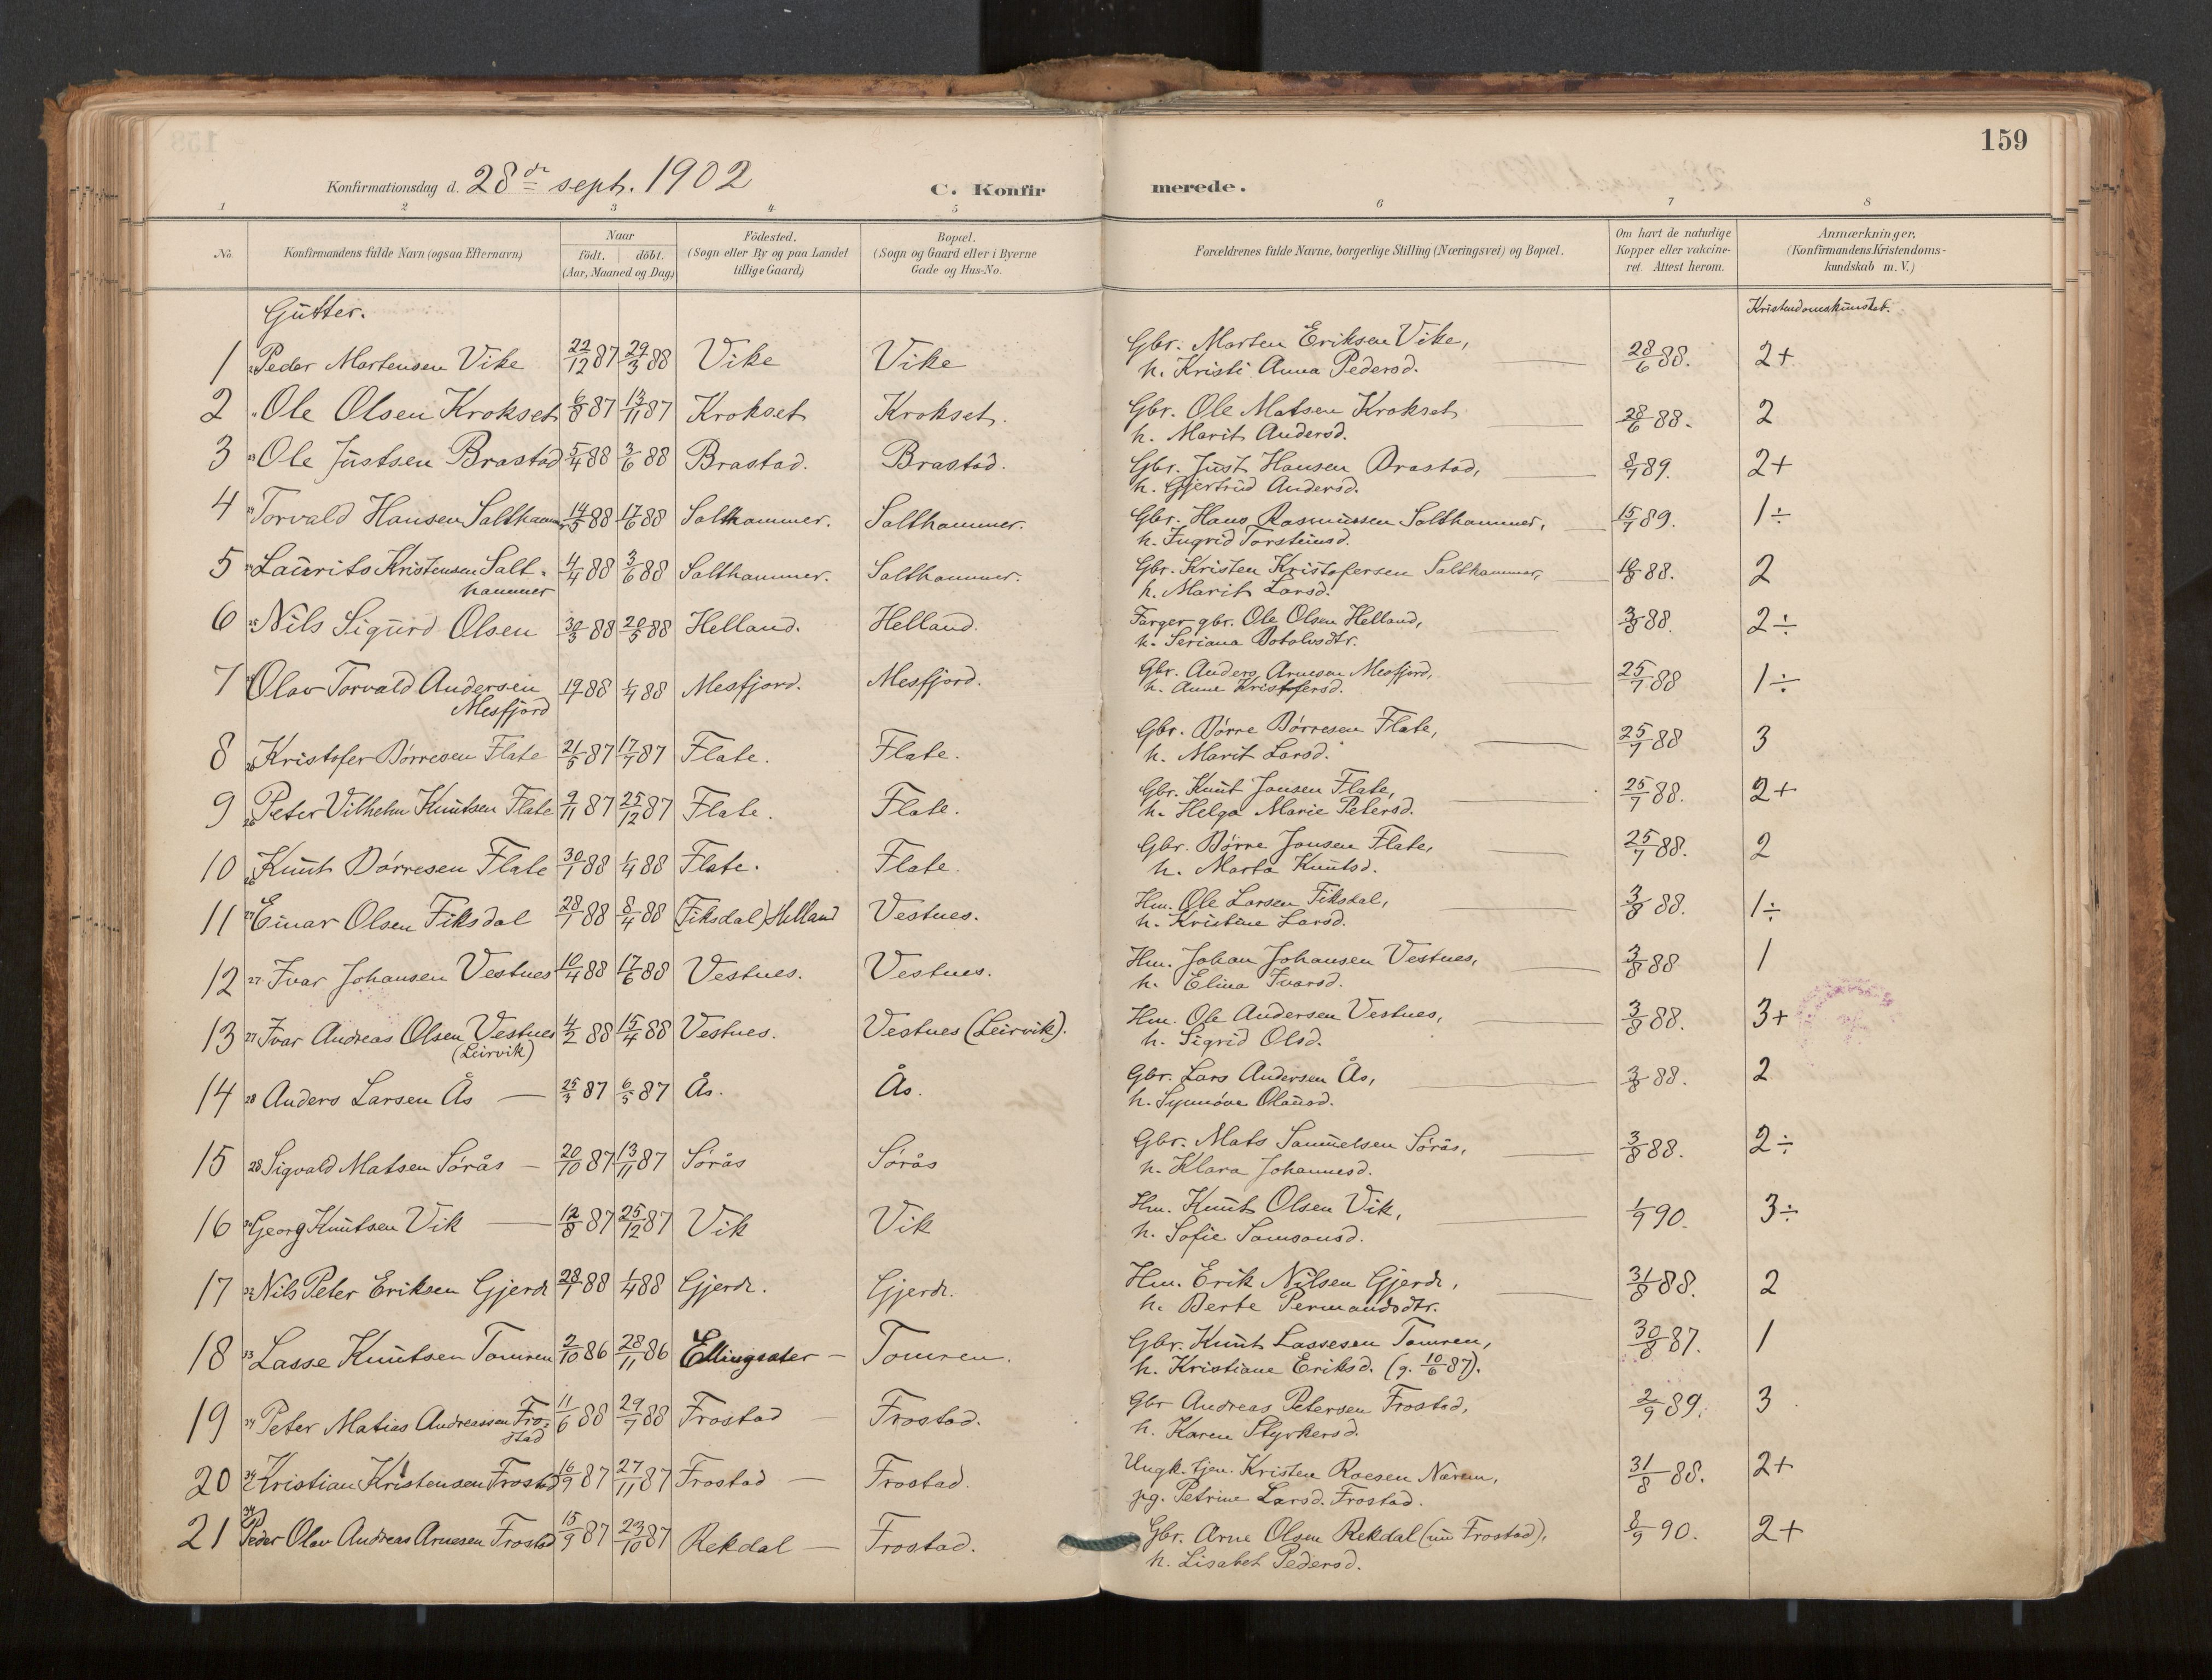 159
Konfirmationsdag d. 28de sept. 1902 C. Konfirmerede.
1 2 3 4 5 6 7 8
No. Konfirmandens fulde Navn (ogsaa Efternavn) Naar födt. döbt. (Aar, Maaned og Dag) Födested. (Sogn eller By og paa Landet tillige Gaard) Bopæl. (Sogn og Gaard eller i Byerne Gade og Hus-No. Forældrenes fulde Navne, borgerlige Stilling (Næringsvei) og Bopæl. Om havt de naturlige Kopper eller vakcineret Attest herom. Anmærkninger. (Konfirmandens Kristendomskundskab m. V.)
Gutter. Kristendomskunskab.
1 Peder Martensen Vike 22/12 87 29/3 88 Vike Vike Gbr. Marten Eriksen Vike, 28/6 88. 2+
h. Kristi Anna Pedersd.
2 Ole Olsen Krokset 6/8 87 13/11 87 Krokset Krokset. Gbr. Ole Matsen Krokset 28/6 88. 2
h. Marit Andersd.
3 Ole Justsen Brastad 5/4 88 3/6 88 Brastad. Brastad. Gbr. Just Hansen Brastad, 8/7 89. 2+
h. Gjertrud Andersd.
4 Torvald Hansen Salthammer 14/5 88 17/6 88 Salthammer. Salthammer. Gbr. Hans Rasmussen Salthammer, 15/7 89. 1÷
h. Ingrid Torsteinsd.
5 Laurits Kristensen Salt- 4/4 88 3/6 88 Salthammer. Salthammer. Gbr. Kristen Kristofersen Salthammer, 88. 2
hammer h. Marit Larsd.
6 Nils Sigurd Olsen 30/3 88 20/5 88 Helland. Helland. Farger gbr. Ole Olsen Helland, 3/8 88. 2÷
h. Seriana Botolvsdtr.
7 Olav Torvald Andersen 88 1/4 88 Mesfjord. Mesfjord. Gbr. Anders Arnesen Mesfjord, 25/7 88 1÷
Mesfjord h. Anne Kristofersd.
8 Kristofer Børresen Flate 21/5 87 17/7 87 Flate. Flate. Gbr. Børre Børresen Flate, 25/7 88 3
h. Marit Larsd.
9 26 Peter Vilhelm Knutsen Flate 9/11 87 25/12 87 Flate. Flate. Gbr. Knut Jonsen Flate, 25/7 88. 2+
h. Helga Marie Petersd.
10 26 Knut Børresen Flate 30/1 88 1/4 88 Flate. Flate. Gbr. Børre Jonsen Flate, 25/7 88. 2
h. Marta Knutsd.
11 27 Einar Olsen Fiksdal 28/1 88 8/4 88 (Fiksdal) Helland Vestnes. Hm. Ole Larsen Fiksdal, 3/8 88. 1÷
h. Kristine Larsd.
12 27 Ivar Johansen Vestnes 10/4 88 17/6 88 Vestnes. Vestnes. Hm. Johan Johansen Vestnes, 3/8 88 1
h. Elina Ivarsd.
13 27 Ivar Andreas Olsen Vestnes 4/2 88 15/4 88 Vestnes. Vestnes (Leirvik). Hm. Ole Andersen Vestnes, 3/8 88. 3+
(Leirvik) h. Sigrid Olsd.
14 28 Anders Larsen Ås — 25/3 87 6/5 87 Ås. Ås. Gbr. Lars Andersen Ås, 3/8 88. 2
h. Synnøve Olausd.
15 28 Sigvald Matsen Sørås — 20/10 87 13/11 87 Sørås Sørås Gbr. Mats Samuelsen Sørås, 3/8 88. 2÷
h. Klara Johannesd.
16 Georg Knutsen Vik — 12/8 87 25/12 87 Vik Vik Hm. Knut Olsen Vik, 1/9 90. 3÷
h. Sofie Samsonsd.
17 32 Nils Peter Eriksen Gjerde 28/1 88 1/4 88 Gjerde. Gjerde. Hm. Erik Nilsen Gjerde, 31/8 88. 2
h. Berte Permandsdtr.
18 33 Lasse Knutsen Tomren 2/10 86 28/11 86 Ellingsæter — Tomren. Gbr. Knut Lassesen Tomren, 30/8 87. 1
h. Kristiane Eriksd. (g. 10/6 87).
19 34 Peter Matias Andreassen Fro- 11/6 88 29/7 88 Frostad — Frostad. Gbr Andreas Petersen Frostad, 2/9 89. 3
stad h. Karen Styrkersd.
20 34 Kristian Kristensen Frostad 16/9 87 27/11 87 Frostad — Frostad. Ungk. tjen. Kristen Roesen Nærem, 31/8 88. 2+
pg. Petrine Larsd. Frostad.
21 34 Peder Olav Andreas Arnesen Frostad 15/9 87 23/10 87 Rekdal — Frostad. Gbr. Arne Olsen Rekdal (nu Frostad), 8/9 90. 2+
h. Lisabet Pedersd.